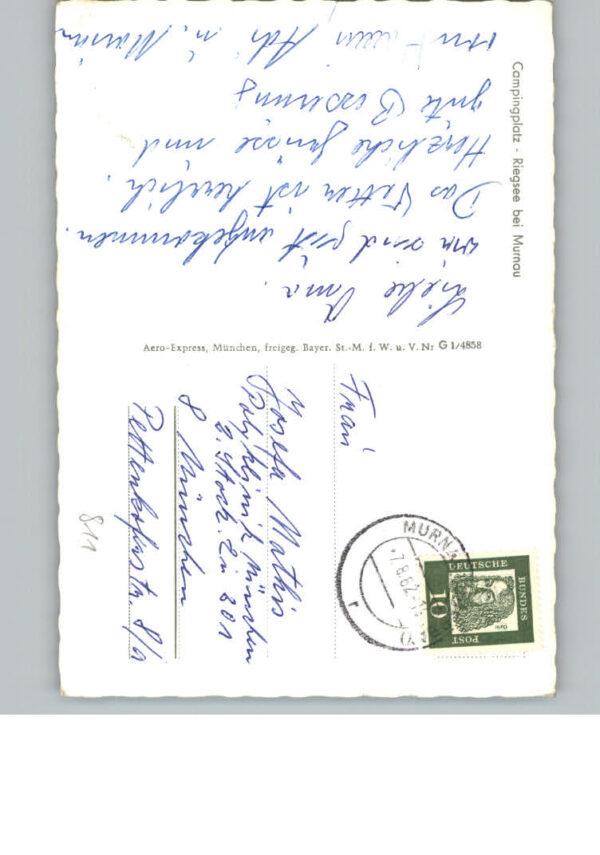 Campingplatz - Riegsee bei Murnau
Liebe Oma.
wir sind gut angekommen.
Das Wetter ist herrlich.
Herzliche Grüsse und
gute Besserung
von Adi u.
Aero-Express, München, freigeg. Bayer. St.-M. f. W. u. V. Nr G 1/4858
Frau
Josefa Mathis
Poliklinik München
2. Stock. Zi 201
8 München
Pettenkoferstr. 8/a
811
MURNAU
7.8.62
DEUTSCHE
BUNDES
POST
10